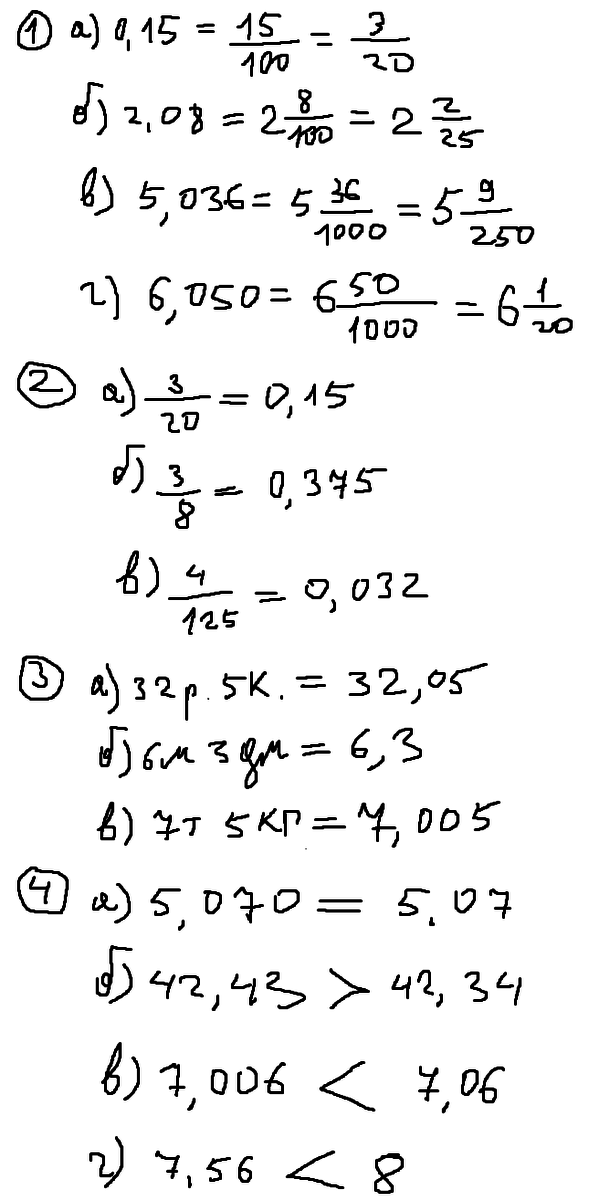 ① а) 0,15 = 15/100 = 3/20
б) 2,08 = 2 8/100 = 2 2/25
в) 5,036 = 5 36/1000 = 5 9/250
г) 6,050 = 6 50/1000 = 6 1/20
② а) 3/20 = 0,15
б) 3/8 = 0,375
в) 4/125 = 0,032
③ а) 32р. 5к. = 32,05
б) 6м 3 дм = 6,3
в) 7т 5кг = 7,005
④ а) 5,070 = 5.07
б) 42,43 > 42,34
в) 7,006 < 7,06
г) 7,56 < 8